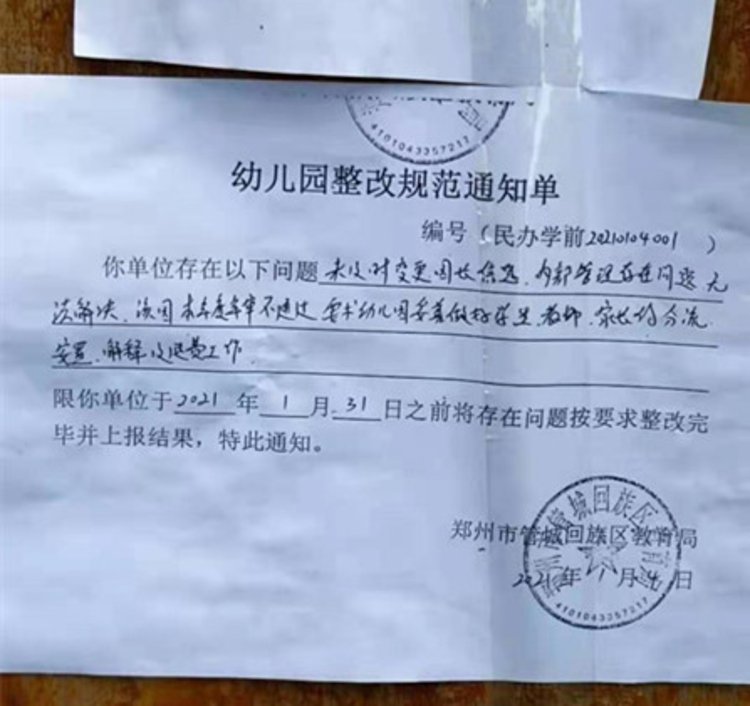 4101043357217
幼儿园整改规范通知单
编号（民办学前20210104001 ）
你单位存在以下问题 未及时变更园长信息，内部管理存在问题无
法解决，该园本年度年审不通过，要求幼儿园妥善做好学生、教师、家长的分流
安置、解释及退费工作
限你单位于2021年1月31日之前将存在问题按要求整改完
毕并上报结果，特此通知。
郑州市管城回族区教育局
2021年1月4日
4101043357217